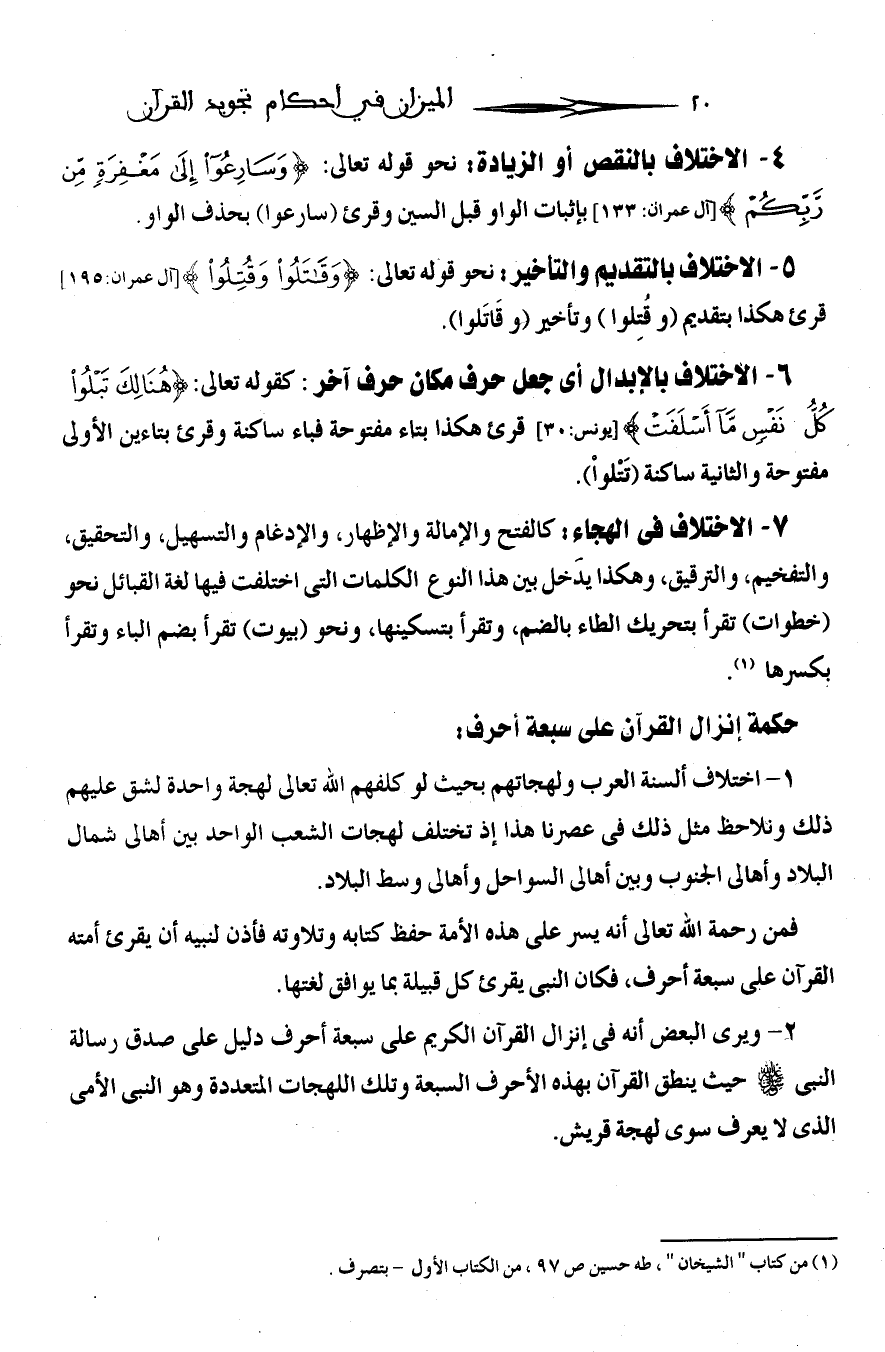 ٢٠ الميزان في أحكام تجويد القرآن
٤- الاختلاف بالنقص أو الزيادة: نحو قوله تعالى: ﴿وَسَارِعُوٓا۟ إِلَىٰ مَغْفِرَةٍ مِّن
رَّبِّكُمْ﴾ [آل عمران: ١٣٣] بإثبات الواو قبل السين وقرئ (سارعوا) بحذف الواو.
٥- الاختلاف بالتقديم والتأخير: نحو قوله تعالى: ﴿وَقَـٰتَلُوا۟ وَقُتِلُوا۟﴾ [آل عمران: ١٩٥]
قرئ هكذا بتقديم (و قُتِلوا) وتأخير (و قَاتَلوا).
٦- الاختلاف بالإبدال أى جعل حرف مكان حرف آخر: كقوله تعالى: ﴿هُنَالِكَ تَبْلُوا۟
كُلُّ نَفْسٍ مَّآ أَسْلَفَتْ﴾ [يونس: ٣٠] قرئ هكذا بتاء مفتوحة فباء ساكنة وقرئ بتاءين الأولى
مفتوحة والثانية ساكنة (تَتْلواْ).
٧- الاختلاف فى الهجاء: كالفتح والإمالة والإظهار، والإدغام والتسهيل، والتحقيق،
والتفخيم، والترقيق، وهكذا يدخل بين هذا النوع الكلمات التى اختلفت فيها لغة القبائل نحو
(خطوات) تقرأ بتحريك الطاء بالضم، وتقرأ بتسكينها، ونحو (بيوت) تقرأ بضم الباء وتقرأ
بكسرها (١).
حكمة إنزال القرآن على سبعة أحرف:
١- اختلاف ألسنة العرب ولهجاتهم بحيث لو كلفهم الله تعالى لهجة واحدة لشق عليهم
ذلك ونلاحظ مثل ذلك فى عصرنا هذا إذ تختلف لهجات الشعب الواحد بين أهالى شمال
البلاد وأهالى الجنوب وبين أهالى السواحل وأهالى وسط البلاد.
فمن رحمة الله تعالى أنه يسر على هذه الأمة حفظ كتابه وتلاوته فأذن لنبيه أن يقرئ أمته
القرآن على سبعة أحرف، فكان النبى يقرئ كل قبيلة بما يوافق لغتها.
٢- ويرى البعض أنه فى إنزال القرآن الكريم على سبعة أحرف دليل على صدق رسالة
النبى ﷺ حيث ينطق القرآن بهذه الأحرف السبعة وتلك اللهجات المتعددة وهو النبى الأمى
الذى لا يعرف سوى لهجة قريش.
(١) من كتاب "الشيخان"، طه حسين ص ٩٧، من الكتاب الأول - بتصرف.